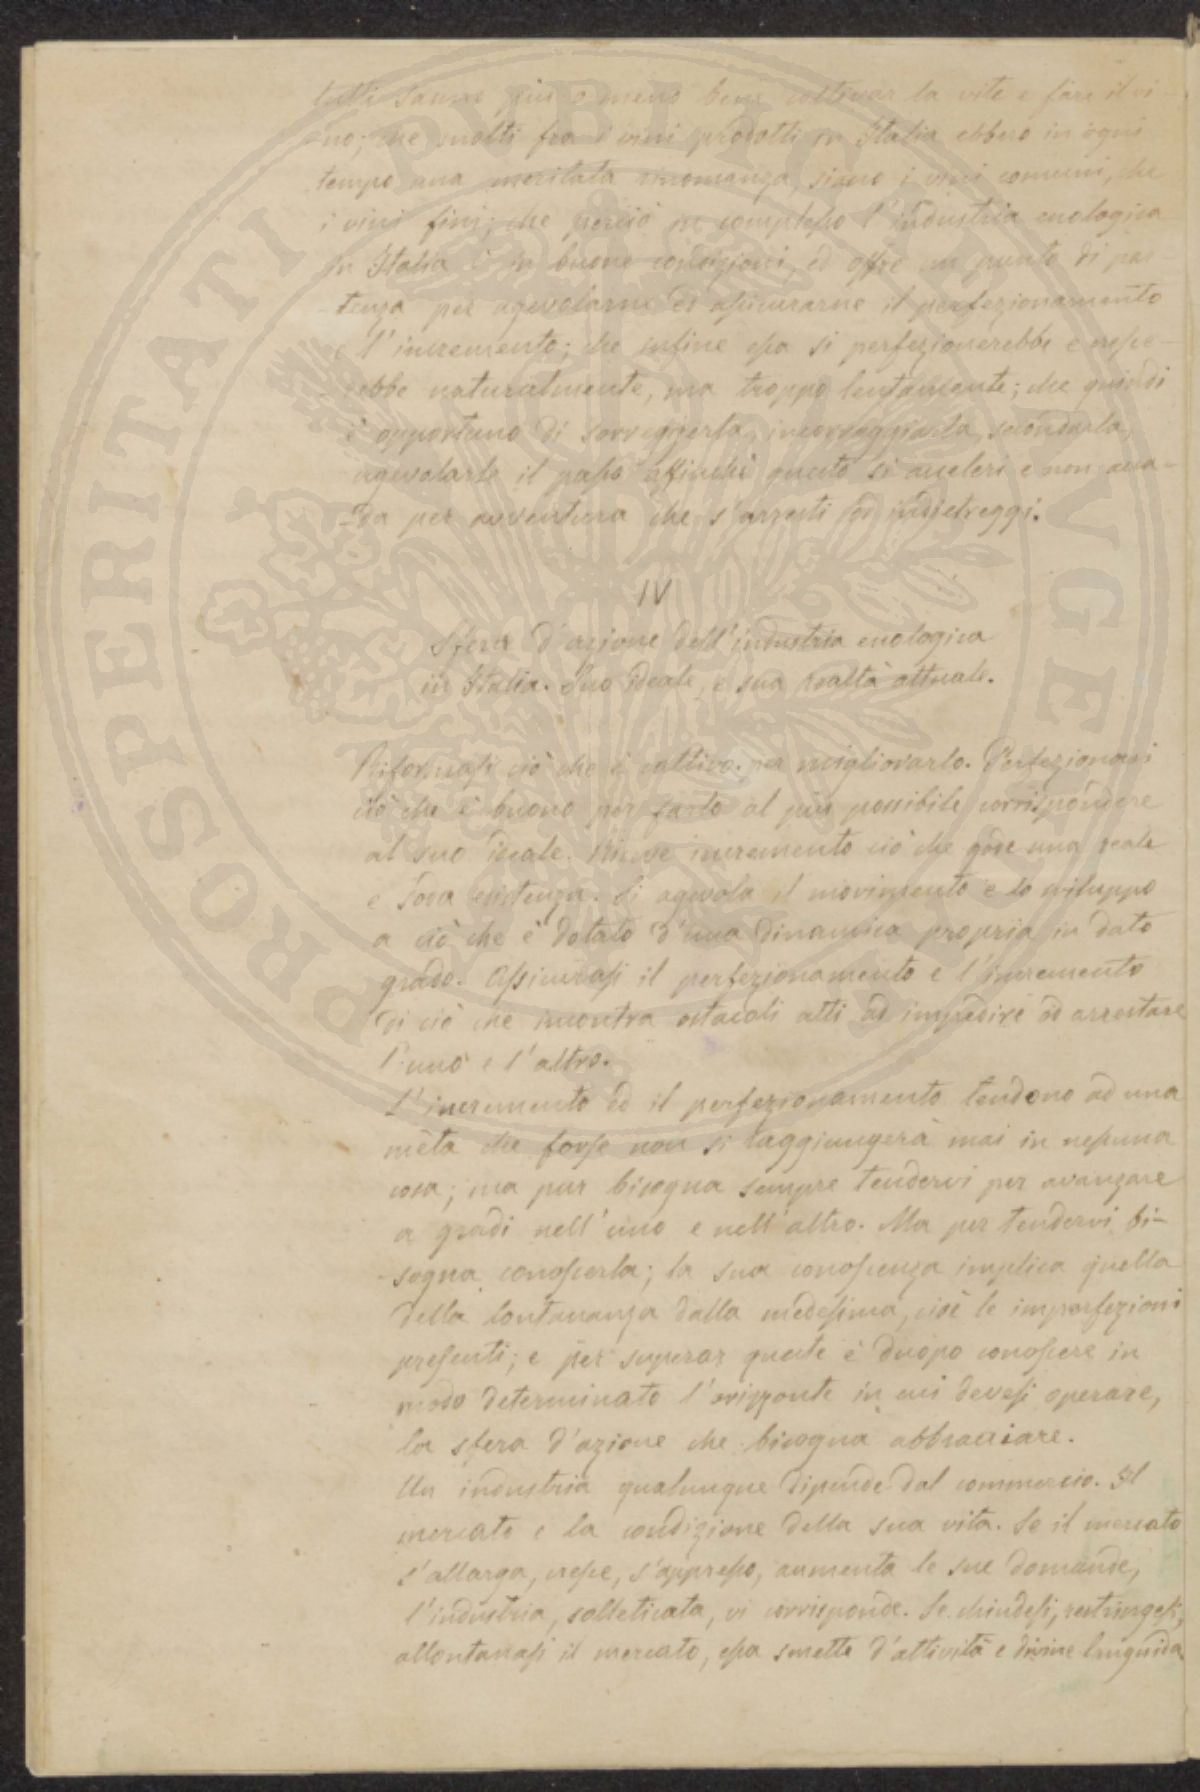 tutti sanno più o meno bene coltivar la vite e fare il vi-
-no; che molti fra i vini prodotti in Italia ebbero in ogni
tempo una meritata rinomanza, siano i vini comuni, che
i vini fini; che perciò in complesso l'industria enologica
in Italia è in buone condizioni, ed offre un punto di par-
-tenza per agevolarne ed assicurarne il perfezionamento
e l'incremento; che infine essa si perfezionerebbe e cresce-
-rebbe naturalmente, ma troppo lentamente; che quindi
è opportuno di sorreggerla, incoraggiarla, secondarla,
agevolarle il passo affinchè questo si acceleri e non acca-
-da per avventura che s'arresti od indietreggi.
IV
Sfera d'azione dell'industria enologica
in Italia. Suo ideale, e sua realtà attuale.
Riformasi ciò che è cattivo per migliorarlo. Perfezionasi
ciò che è buono per farlo al più possibile corrispondere
al suo ideale. Riceve incremento ciò che gode una reale
e soda esistenza. Si agevola il movimento e lo sviluppo
a ciò che è dotato d'una dinamica propria in dato
grado. Assicurasi il perfezionamento e l'incremento
di ciò che incontra ostacoli atti ad impedire od arrestare
l'uno e l'altro.
L'incremento ed il perfezionamento tendono ad una
mèta che forse non si raggiungerà mai in nessuna
cosa; ma pur bisogna sempre tendervi per avanzare
a gradi nell'uno e nell'altro. Ma per tendervi bi-
-sogna conoscerla; la sua conoscenza implica quella
della lontananza dalla medesima, cioè le imperfezioni
presenti; e per superar queste è duopo conoscere in
modo determinato l'orizzonte in cui devesi operare,
la sfera d'azione che bisogna abbracciare.
Un industria qualunque dipende dal commercio. Il
mercato e la condizione della sua vita. Se il mercato
s'allarga, cresce, s'appressa, aumenta le sue domande,
l'industria, solleticata, vi corrisponde. Se chiudesi, restringesi,
allontanasi il mercato, essa smette d'attività e divine languida
PROSPERITATI PUBLICAE AUGENDAE